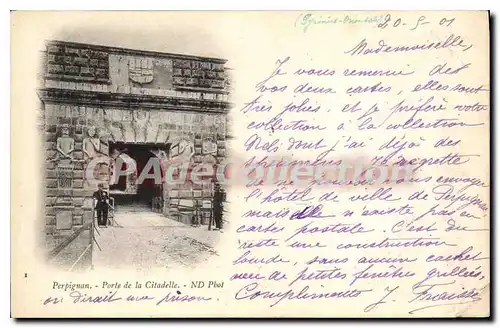 (Pyrénées-Orientales)
20-5-01
Mademoiselle,
Je vous remercie des
vos deux cartes, elles sont
très jolies. et je préfère votre
collection à la collection
dont j'ai déjà des
spécimens. Je regrette
de ne pouvoir vous envoyer
l'hôtel de ville de Perpignan
mais elle n'existe pas en
carte postale. C'est du
reste une construction
lourde, sans aucun cachet
avec de petites fenêtres grillées
on dirait une prison.
Compliments J.
1
Perpignan. - Porte de la Citadelle. - ND Phot